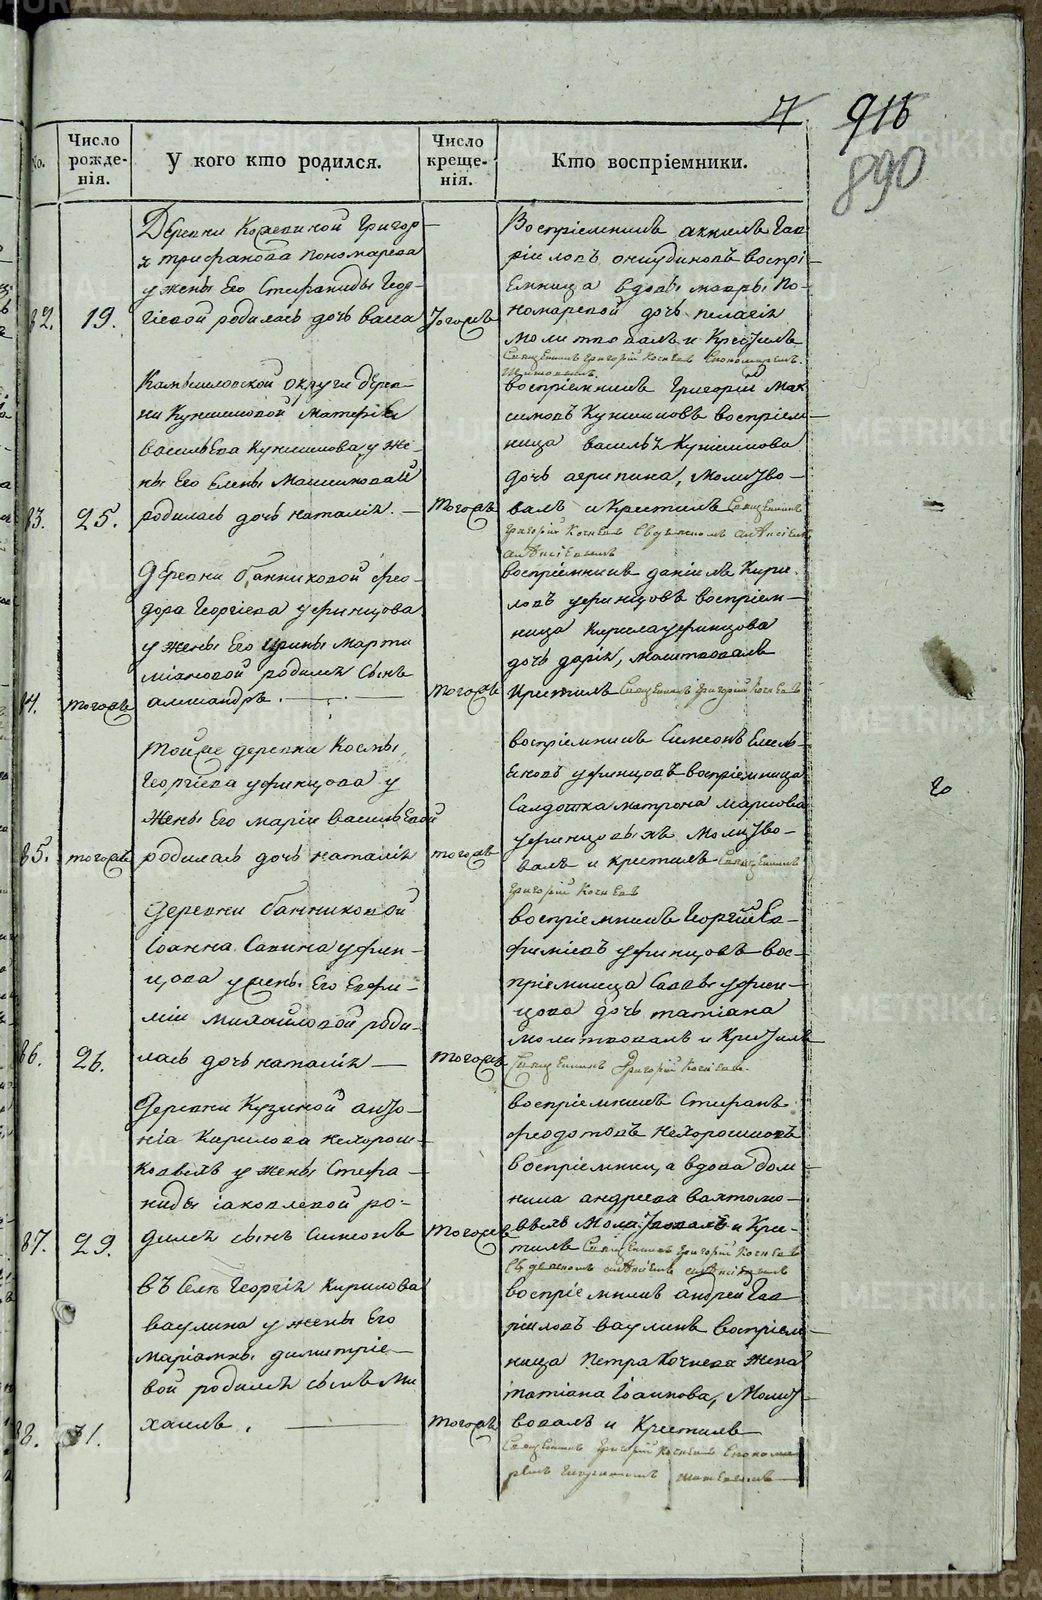 7 916
890
Число рожденія.
У кого кто родился.
Число крещенія.
Кто воспріемники.
82.
19.
Деревни Кожевиной Григор-
я трифанова пономарева
у жены Его Стефаниды Геор-
гіевой родилась дочь васса
Тогожъ
Воспріемникъ акилъ Гав
ріиловъ онкудиновъ воспрі-
емница вдовы мавры По-
номаревой дочь пелагія
молитвовалъ и Крестилъ
Священникъ Григорій Кочневъ
83.
25.
Камышловской округи дерев-
ни Кукшиновой,
васильева у же-
ны его Елены Максимовой
родилась дочь наталія. —
Тогожъ
воспріемникъ Григорій Мак
симовъ воспріем-
ница василья
дочь агрипина, молитво-
валъ и Крестилъ Священникъ
Григорій Кочневъ
84.
тогожъ
Деревни банниковой фео-
дора Георгіева уфинцова
у жены Его Ирины Марти
міановой родился сынъ
александръ. —
тогожъ
воспріемникъ даніилъ Кири-
ловъ уфинцовъ воспріем-
ница Кирила уфинцова
дочь дарія, молитвовалъ
Крестилъ Священникъ Григорій Кочневъ
85.
тогожъ
тойже деревни Космы
Георгіева уфинцова у
жены Его маріи васильевой
родилась дочь наталія
тогожъ
воспріемникъ Симеонъ Емель-
яновъ уфинцовъ воспріемница
Салдатка матрона маркова
уфинцовыхъ молитво-
валъ и крестилъ Священникъ
Григорій Кочневъ
86.
26.
Деревни банниковой
Іоанна Савина уфин-
цова у жены Его Евфи-
міи михайловой роди-
лась дочь наталія —
тогожъ
воспріемникъ Георгій Ев-
фиміевъ уфинцовъ вос-
пріемница Саввы уфин-
цова дочь татіана
молитвовалъ и Крестилъ
Священникъ Григорій Кочневъ.
87.
29.
Деревни Кузиной анто-
нія Кирилова нехорош-
ковыхъ у жены Стефа-
ниды іаковлевой ро-
дился сынъ Симеонъ
тогожъ
воспріемникъ Стефанъ
феодотовъ нехорошковъ
воспріемница вдова дом-
ника андреева вахтомо-
выхъ молитвовалъ и Кре-
тилъ Священникъ Григорій Кочневъ
88.
31.
въ Селѣ Георгія Кирилова
ваулина у жены Его
маріамны димитріе-
вой родился сынъ Ми
хаилъ. —
тогожъ
воспріемникъ андрей Гав
ріиловъ ваулинъ воспріем-
ница петра Кочнева жена
татіана Іоакимова, молит-
вовалъ и Крестилъ
Священникъ Григорій Кочневъ